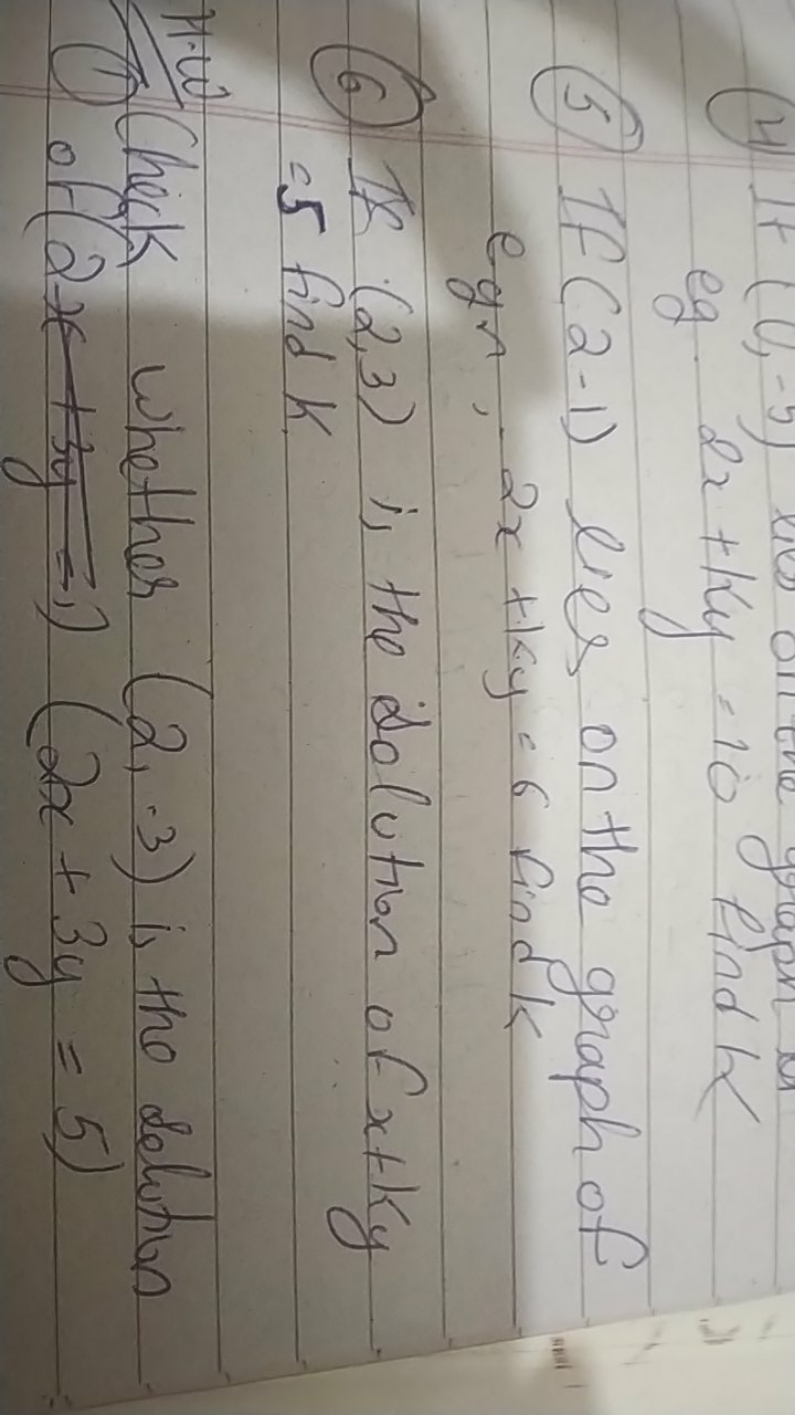 (4) If (0,-5) lies on the graph of
eq. 2x+Ky = 10 find K
(5) If (2-1) lies on the graph of
eqn, 2x + ky = 6 find k
(6) If (2,3) is the solution of x+Ky
=5 find K
H.W
(1) Check whether (2,-3) is the solution
of (2x+3y=) (2x + 3y = 5)